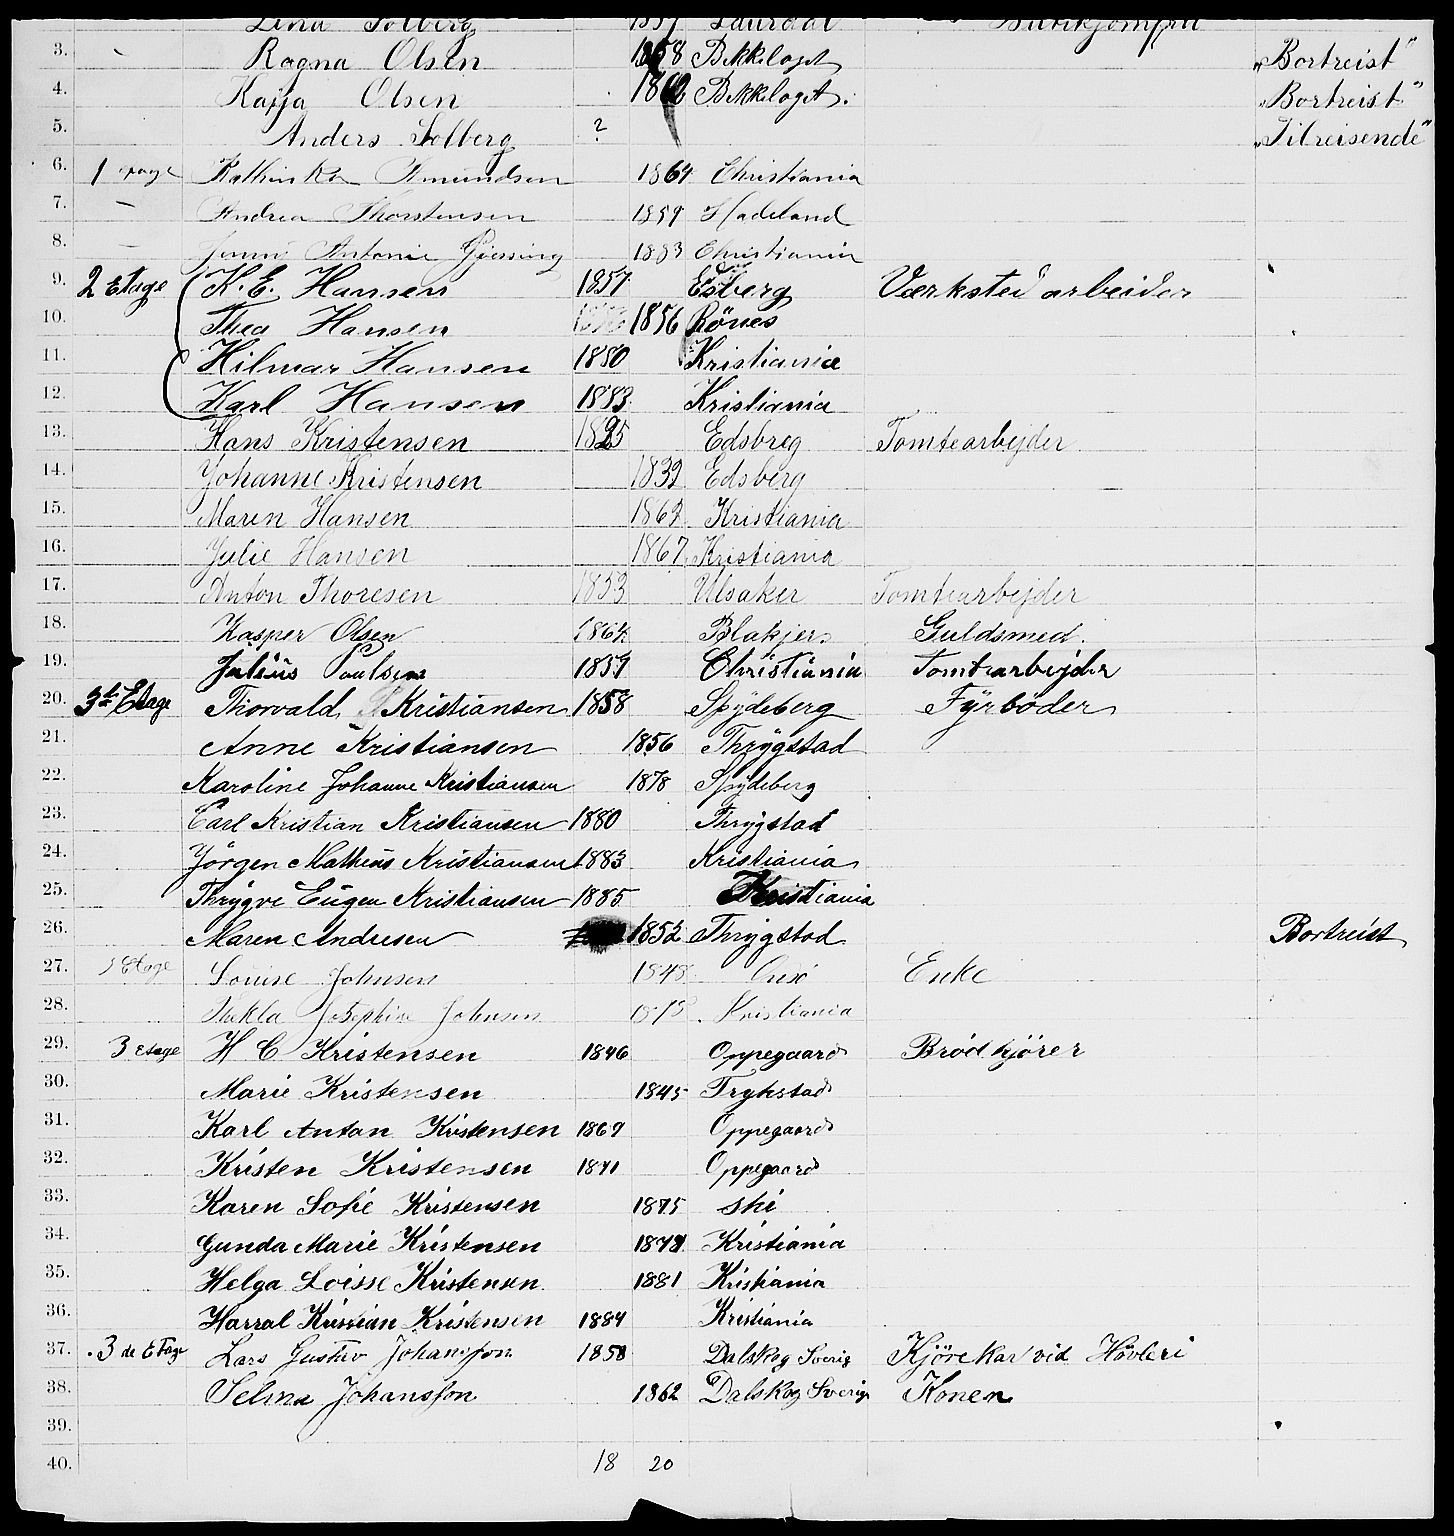 Lina Solberg 1857 Laurdal
3. Ragna Olsen 1858 Bekkelaget „Bortreist"
4. Kajja Olsen 1860 Bekkelaget. „Bortreist"
5. Anders Solberg ? „Tilreisende"
6. 1 etage Kathinka Amundsen 1864 Christiania
7. – Andrea Thorstensen 1859 Hadeland
8. – Jenni Antonie Gjersing 1883 Christiania
9. 2 Etage K. E. Hansen 1857 Edsberg Værksted arbeider
10. Thea Hansen 1856 Rönes
11. Hilmar Hansen 1880 Kristiania
12. Karl Hansen 1883 Kristiania
13. Hans Kristensen 1825 Edsbreg Tomtearbejder
14. Johanne Kristensen 1832 Edsberg
15. Maren Hansen 1862 Kristiania
16. Julie Hansen 1867 Kristiania
17. Anton Thoresen 1853 Ulsaker Tomtearbejder
18. Kasper Olsen 1864 Blakjer Guldsmed.
19. Julius Paulsen 1857 Christiania Tomtearbejder
20. 3de Etage Thorvald Kristiansen 1858 Spydeberg Fyrböder
21. Anne Kristiansen 1856 Thrygstad
22. Karoline Johanne Kristiansen 1878 Spydeberg
23. Carl Kristian Kristiansen 1880 Thrygstad
24. Jörgen Matheus Kristiansen 1883 Kristiania
25. Thrygve Eugen Kristiansen 1885 Kristiania
26. Maren Andresen 1852 Thrygstad Bortreist
27. Etage Louise Johnsen 1848 Enke
28. Thekla Josephine Johnsen 1878 Kristiania
29. 3 etage H C Kristensen 1846 Oppegaard Brödkjörer
30. Marie Kristensen 1845 Trykstad
31. Karl Anton Kristensen 1869 Oppegaard
32. Kristen Kristensen 1871 Oppegaard
33. Karen Sofie Kristensen 1875 ski
34. Gunda Marie Kristensen 1879 Kristiania
35. Helga Loisse Kristensen 1881 Kristiania
36. Harral Kristian Kristensen 1884 Kristiania
37. 3 de Etage Lars Gustav Johansson 1858 Dalskog Sverig Kjörekar vid Hövleri
38. Selma Johansson 1862 Dalskog Sverig Konen
39.
40. 18 20